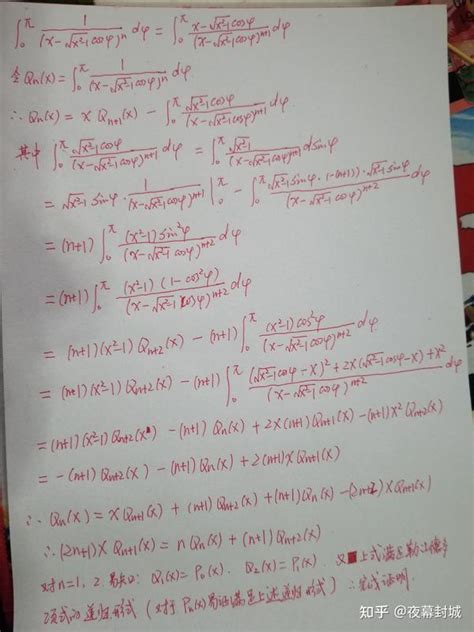 ∫₀^π 1/(x-√(x²-1)cosφ)ⁿ dφ = ∫₀^π (x-√(x²-1)cosφ)/(x-√(x²-1)cosφ)ⁿ⁺¹ dφ
令 Qn(x) = ∫₀^π 1/(x-√(x²-1)cosφ)ⁿ dφ
∴ Qn(x) = x Qn+1(x) - ∫₀^π √(x²-1)cosφ/(x-√(x²-1)cosφ)ⁿ⁺¹ dφ
其中 ∫₀^π √(x²-1)cosφ/(x-√(x²-1)cosφ)ⁿ⁺¹ dφ = ∫₀^π √(x²-1)/(x-√(x²-1)cosφ)ⁿ⁺¹ dsinφ
= √(x²-1) sinφ · 1/(x-√(x²-1)cosφ)ⁿ⁺¹ |₀^π - ∫₀^π √(x²-1) sinφ · (-(n+1)) · √(x²-1) sinφ/(x-√(x²-1)cosφ)ⁿ⁺² dφ
= (n+1) ∫₀^π (x²-1) sin²φ/(x-√(x²-1)cosφ)ⁿ⁺² dφ
= (n+1) ∫₀^π (x²-1) (1-cos²φ)/(x-√(x²-1)cosφ)ⁿ⁺² dφ
= (n+1)(x²-1) Qn+2(x) - (n+1) ∫₀^π (x²-1)cos²φ/(x-√(x²-1)cosφ)ⁿ⁺² dφ
= (n+1)(x²-1) Qn+2(x) - (n+1) ∫₀^π ((√(x²-1)cosφ-x)² + 2x(√(x²-1)cosφ-x) + x²)/(x-√(x²-1)cosφ)ⁿ⁺² dφ
= (n+1)(x²-1) Qn+2(x) - (n+1) Qn(x) + 2x(n+1) Qn+1(x) - (n+1) x² Qn+2(x)
= -(n+1) Qn+2(x) - (n+1) Qn(x) + 2(n+1) x Qn+1(x)
∴ Qn(x) = x Qn+1(x) + (n+1) Qn+2(x) + (n+1) Qn(x) - (2n+2) x Qn+1(x)
∴ (2n+1) x Qn+1(x) = n Qn(x) + (n+1) Qn+2(x)
对 n=1, 2. 易知: Q1(x) = P0(x). Q2(x) = P1(x). 又上式满足勒让德多
项式的递归形式 (对于 Pn(x) 易证满足上述递归形式) ∴ 完成证明.
知乎 @夜幕封城